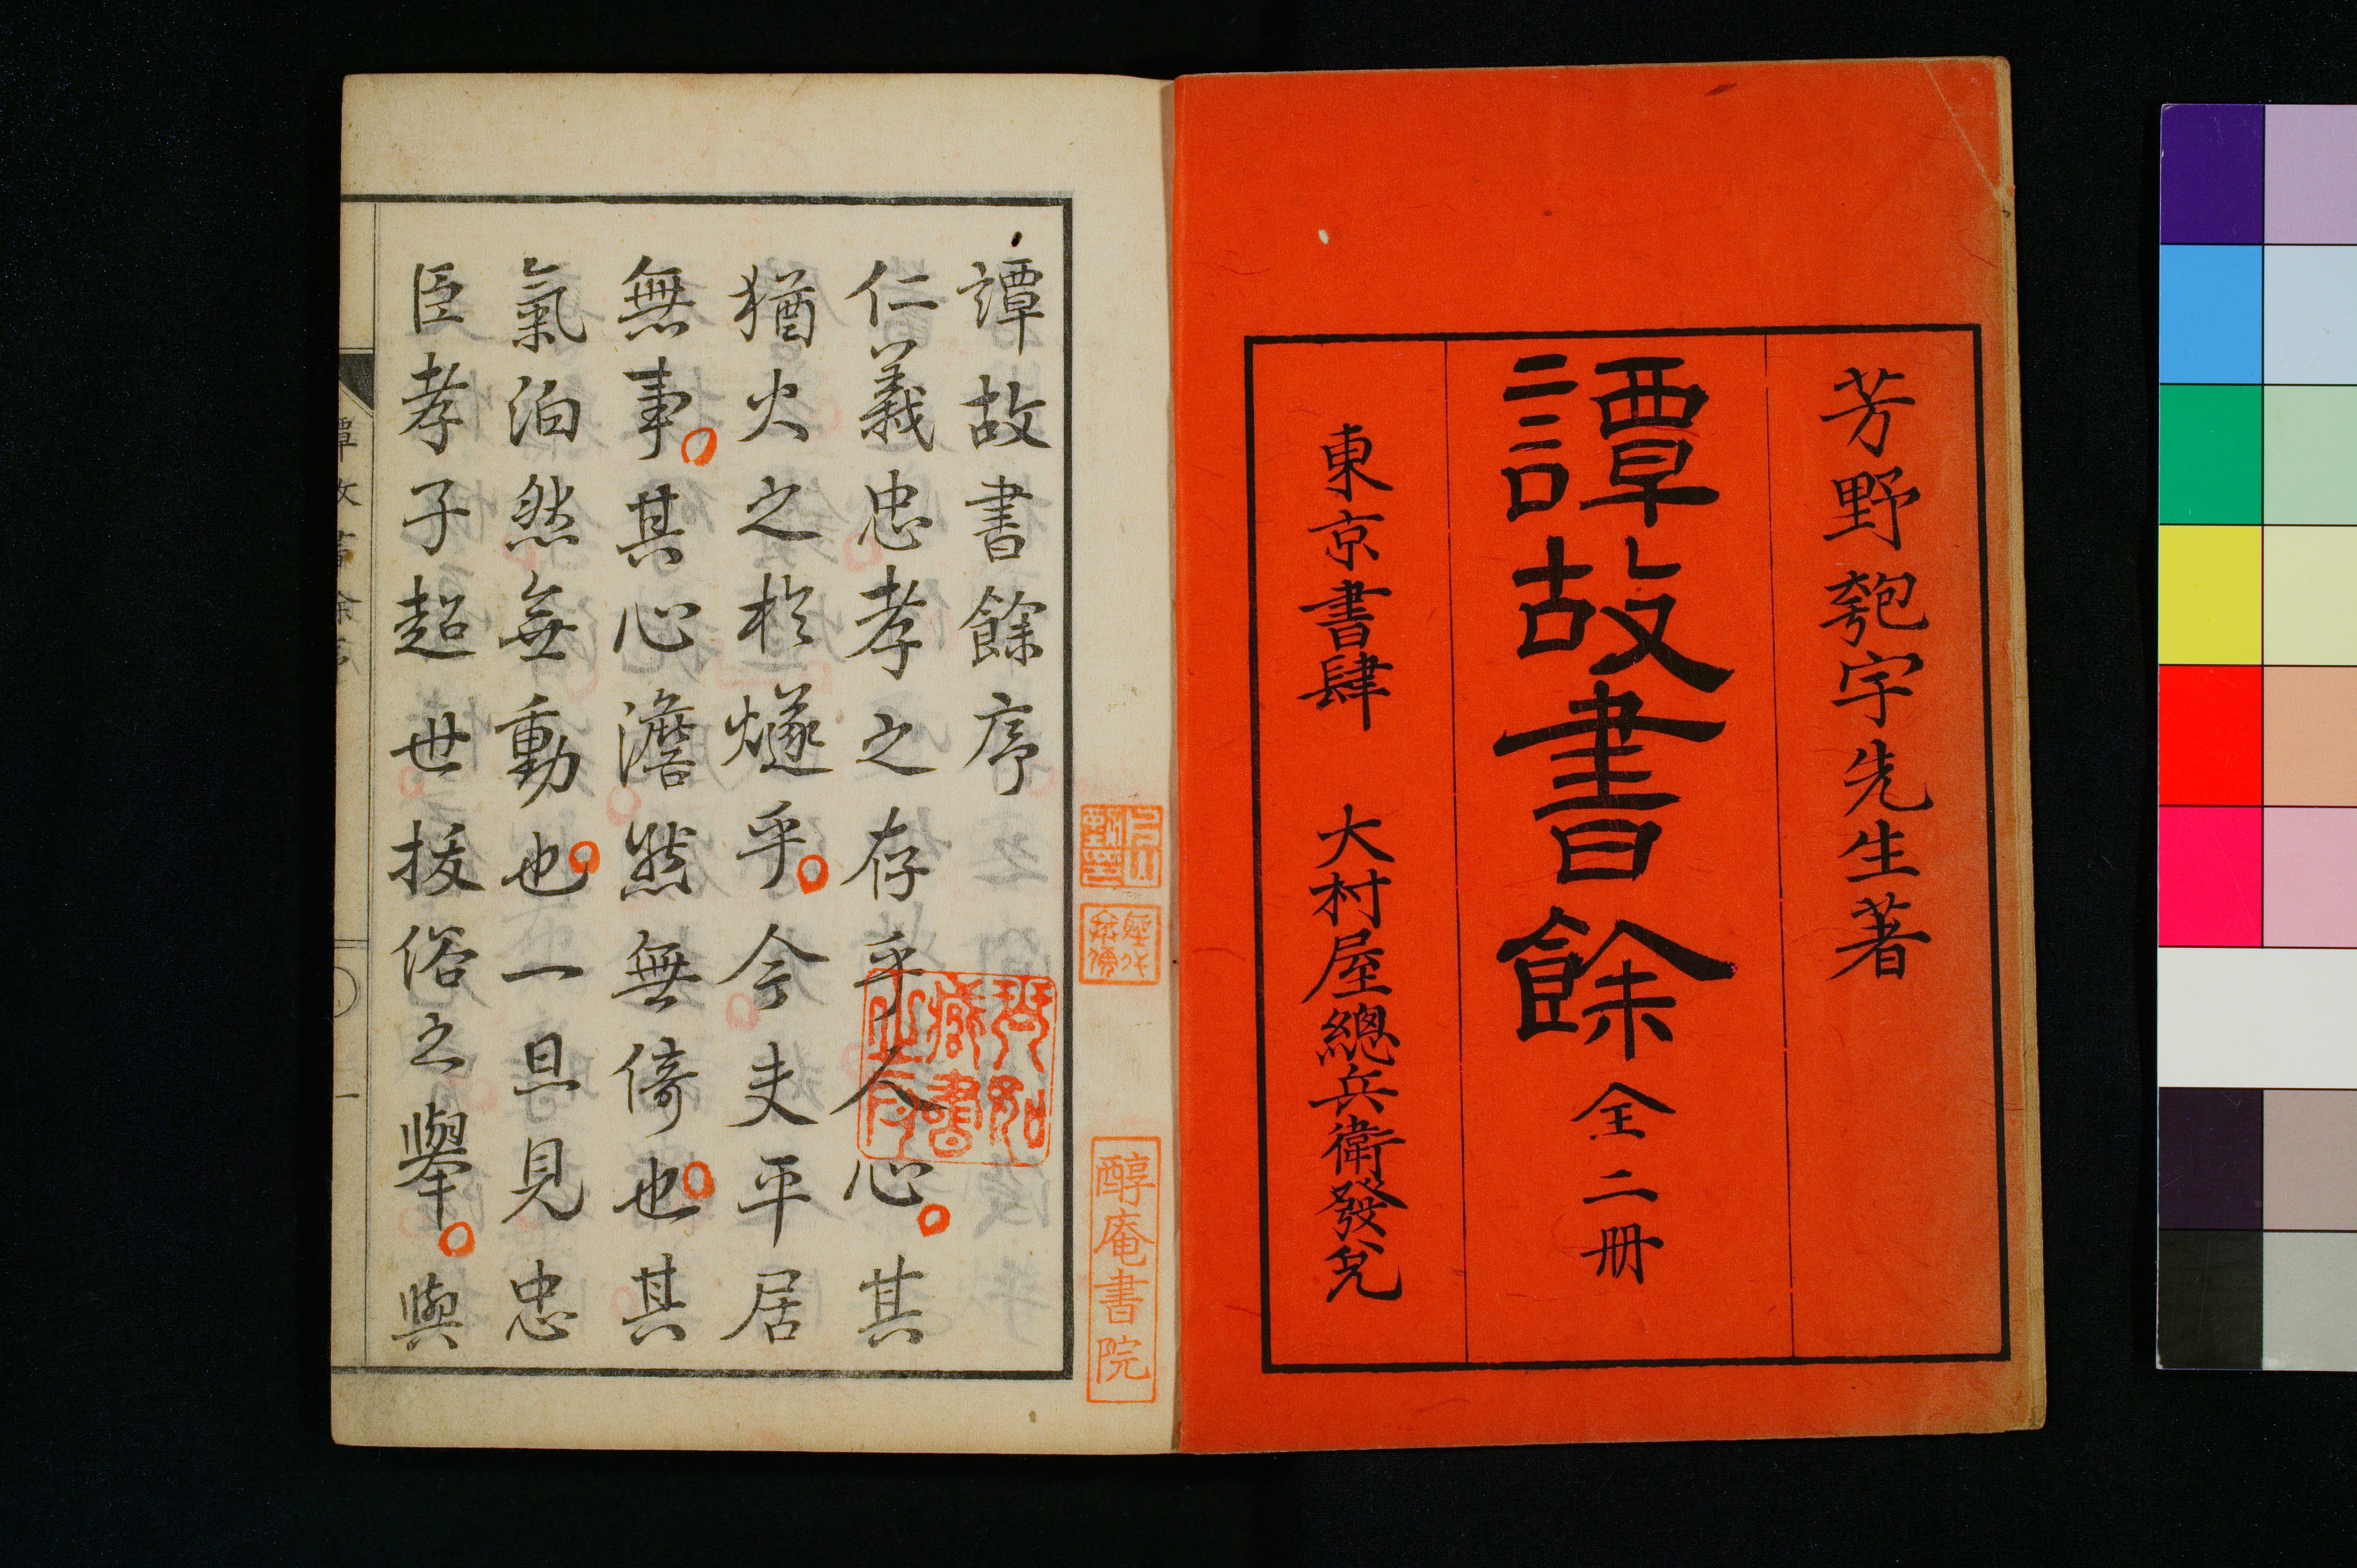 芳野匏宇先生著
譚故書餘 全二冊
東京書肆 大村屋總兵衛發兌
譚故書餘序
仁義忠孝之存乎人心其
猶火之於燧乎今夫平居
無事其心澹然無倚也其
氣泊然無動也一旦見忠
臣孝子超世拔俗之擧與
醇庵書院